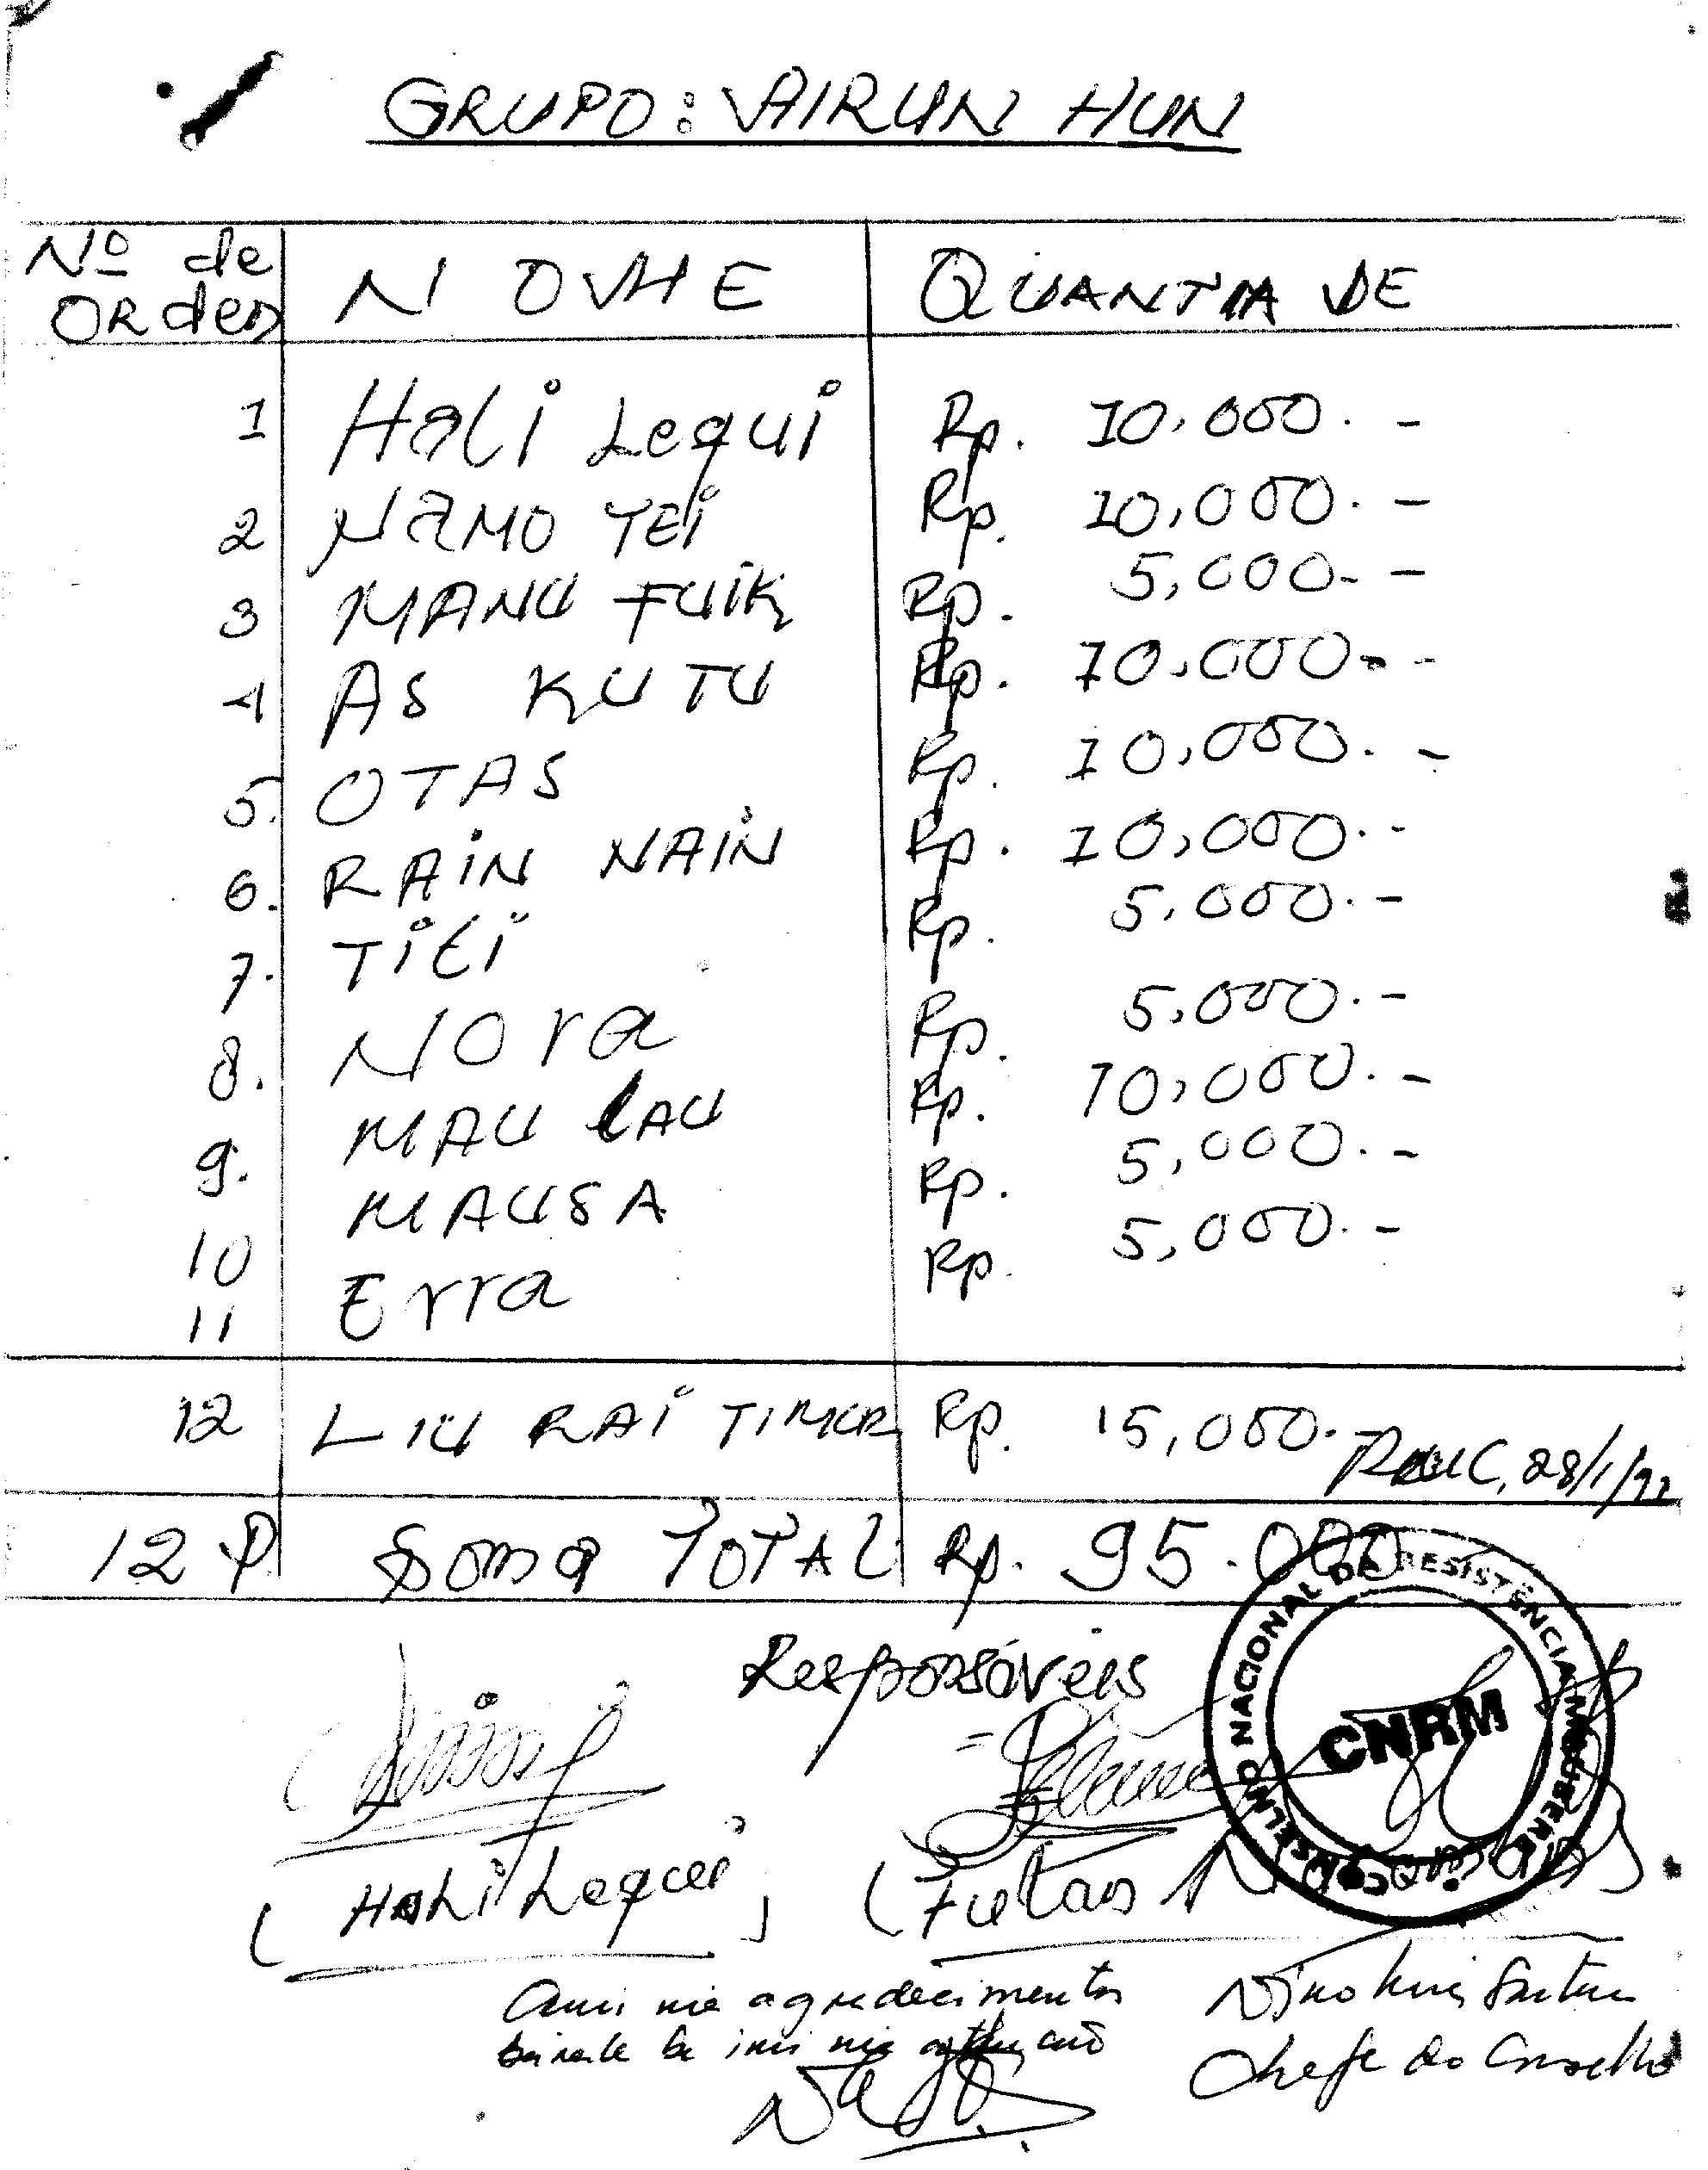 GRUPO: AIRUN HUN
Nº de Orden NOME QUANTIA DE
1 Hali Lequi Rp. 10,000.-
2 NAMO TEI Rp. 10,000.-
3 MANU FUIK Rp. 5,000.-
4 AS KUTU Rp. 10,000.-
5. OTAS Rp. 10,000.-
6. RAIN NAIN Rp. 10,000.-
7. Titi Rp. 5,000.-
8. Nora Rp. 5,000.-
9. MAU LAU Rp. 10,000.-
10 MAUSA Rp. 5,000.-
11 Erra Rp. 5,000.-
12 LIU RAI TIMUR Rp. 15,000.-
28/1/97
12 P Soma TOTAL Rp. 95.000
Responsáveis
CONSELHO NACIONAL DA RESISTÊNCIA MAUBERE
CNRM
(Hali Lequi) (Fulan
agradecimentos
Chefe do Conselho